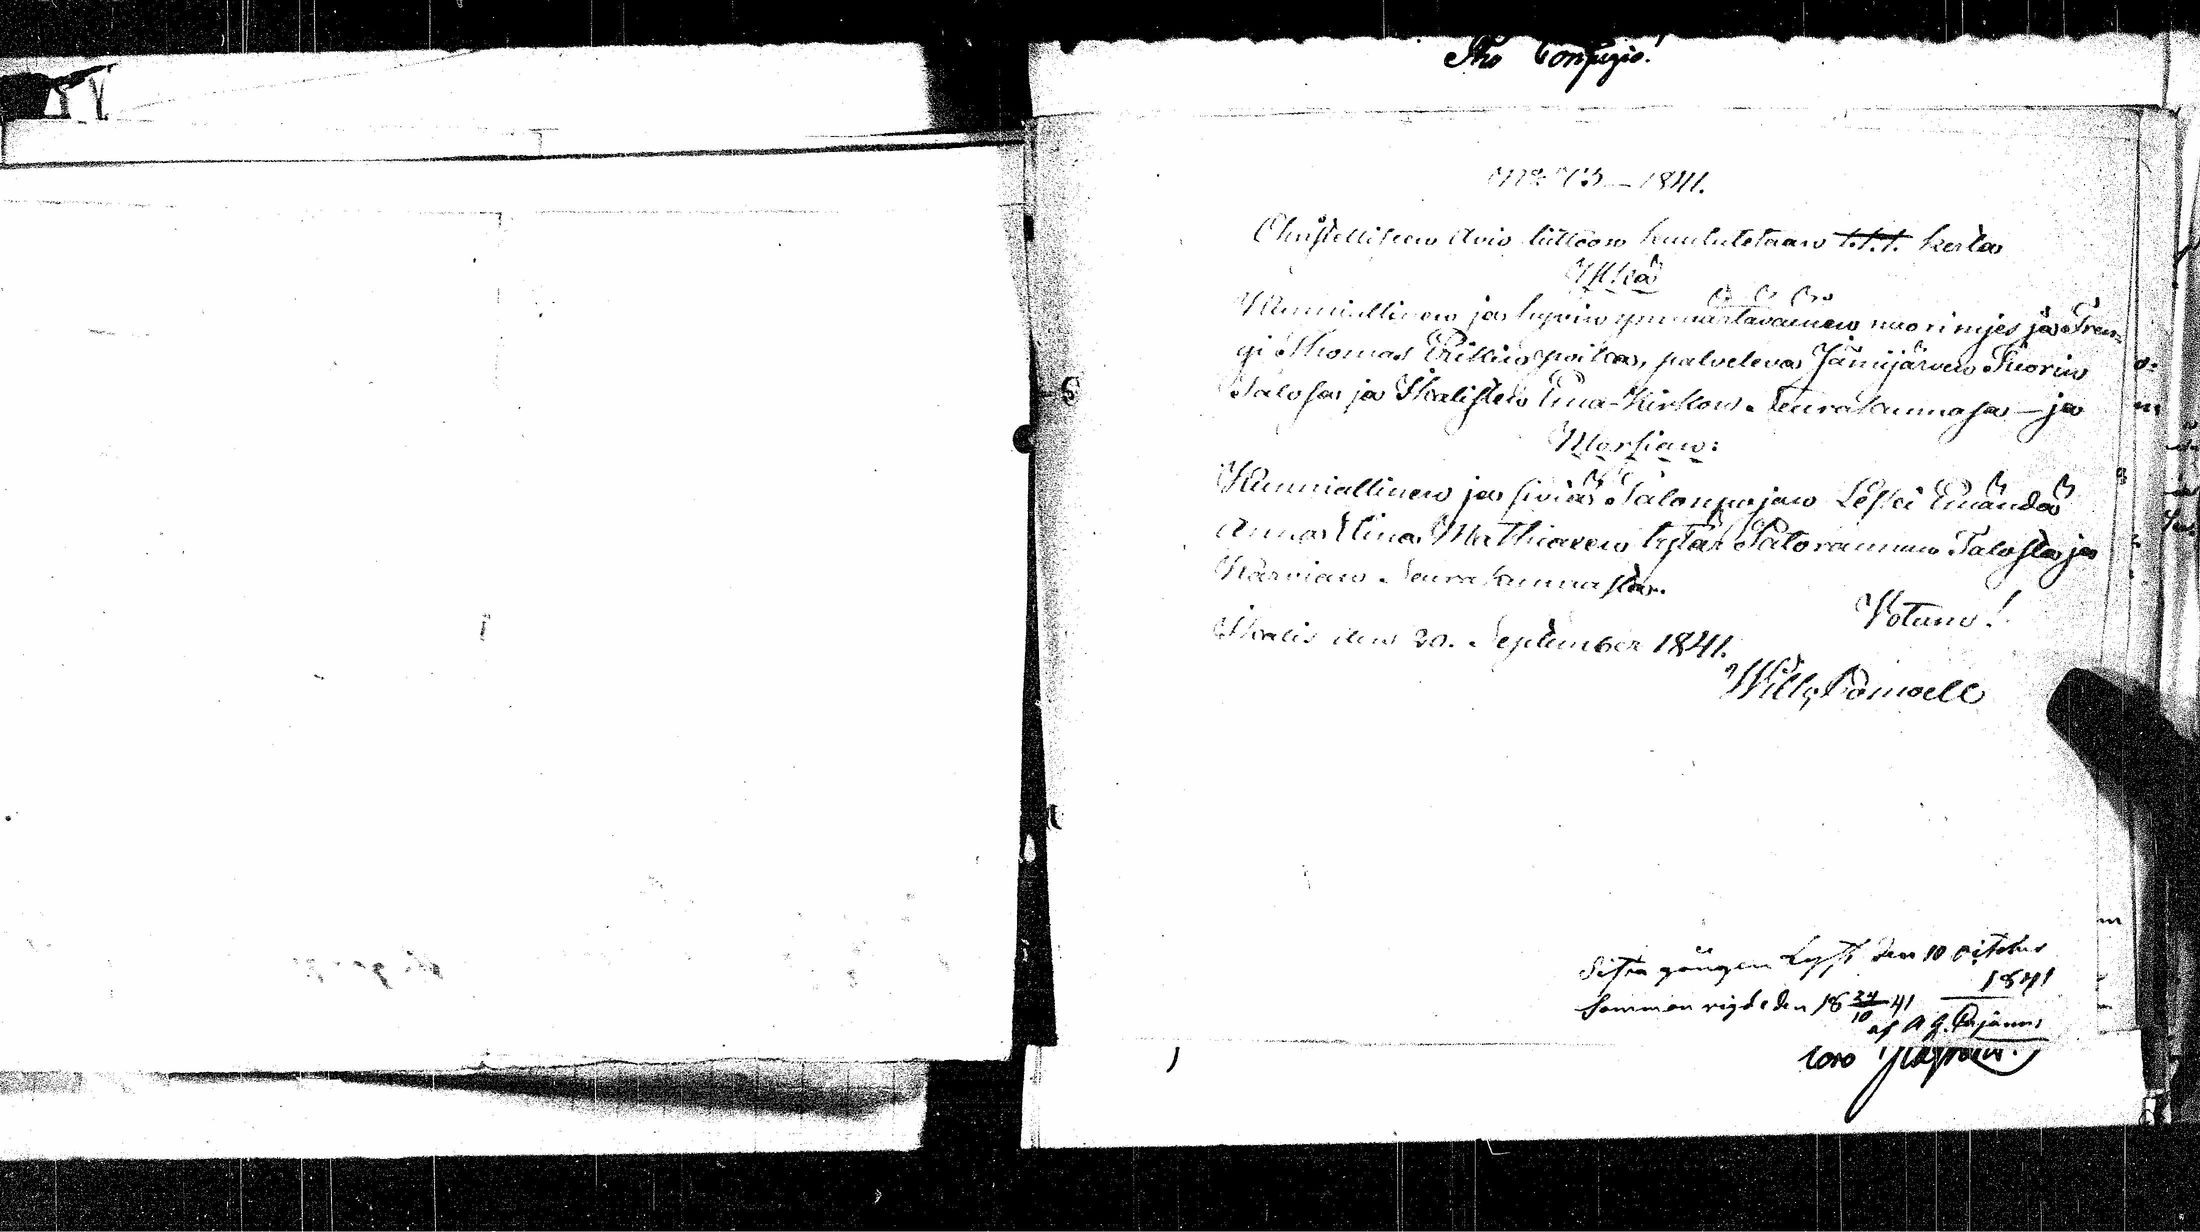 Pro Confugio!
N:o 73 – 1841.
Christellisen Avio liittoon kuulutetaan t.t.t. kerta
Ylkä
Kunniallinen ja hyvin ymmärtäväinen nuori mjes ja Tren-
gi Thomas Erikin poika, palveleva Jämijärven Kuorin
Talosa ja Ikalisten Emä-Kirkon Seurakunnasa – ja
Morsian:
Kunniallinen ja siviä Talonpojan Leski Emändä
Anna Stina Mathiaxen tytär Palorannan Talosta ja
Karvian Seurakunnasta.
Votum!
Ikalis den 20. September 1841.
Wilh,
Sista gången Lyst den 10 October
1841
Sammanvigde den 18 24/10 41
af A G.